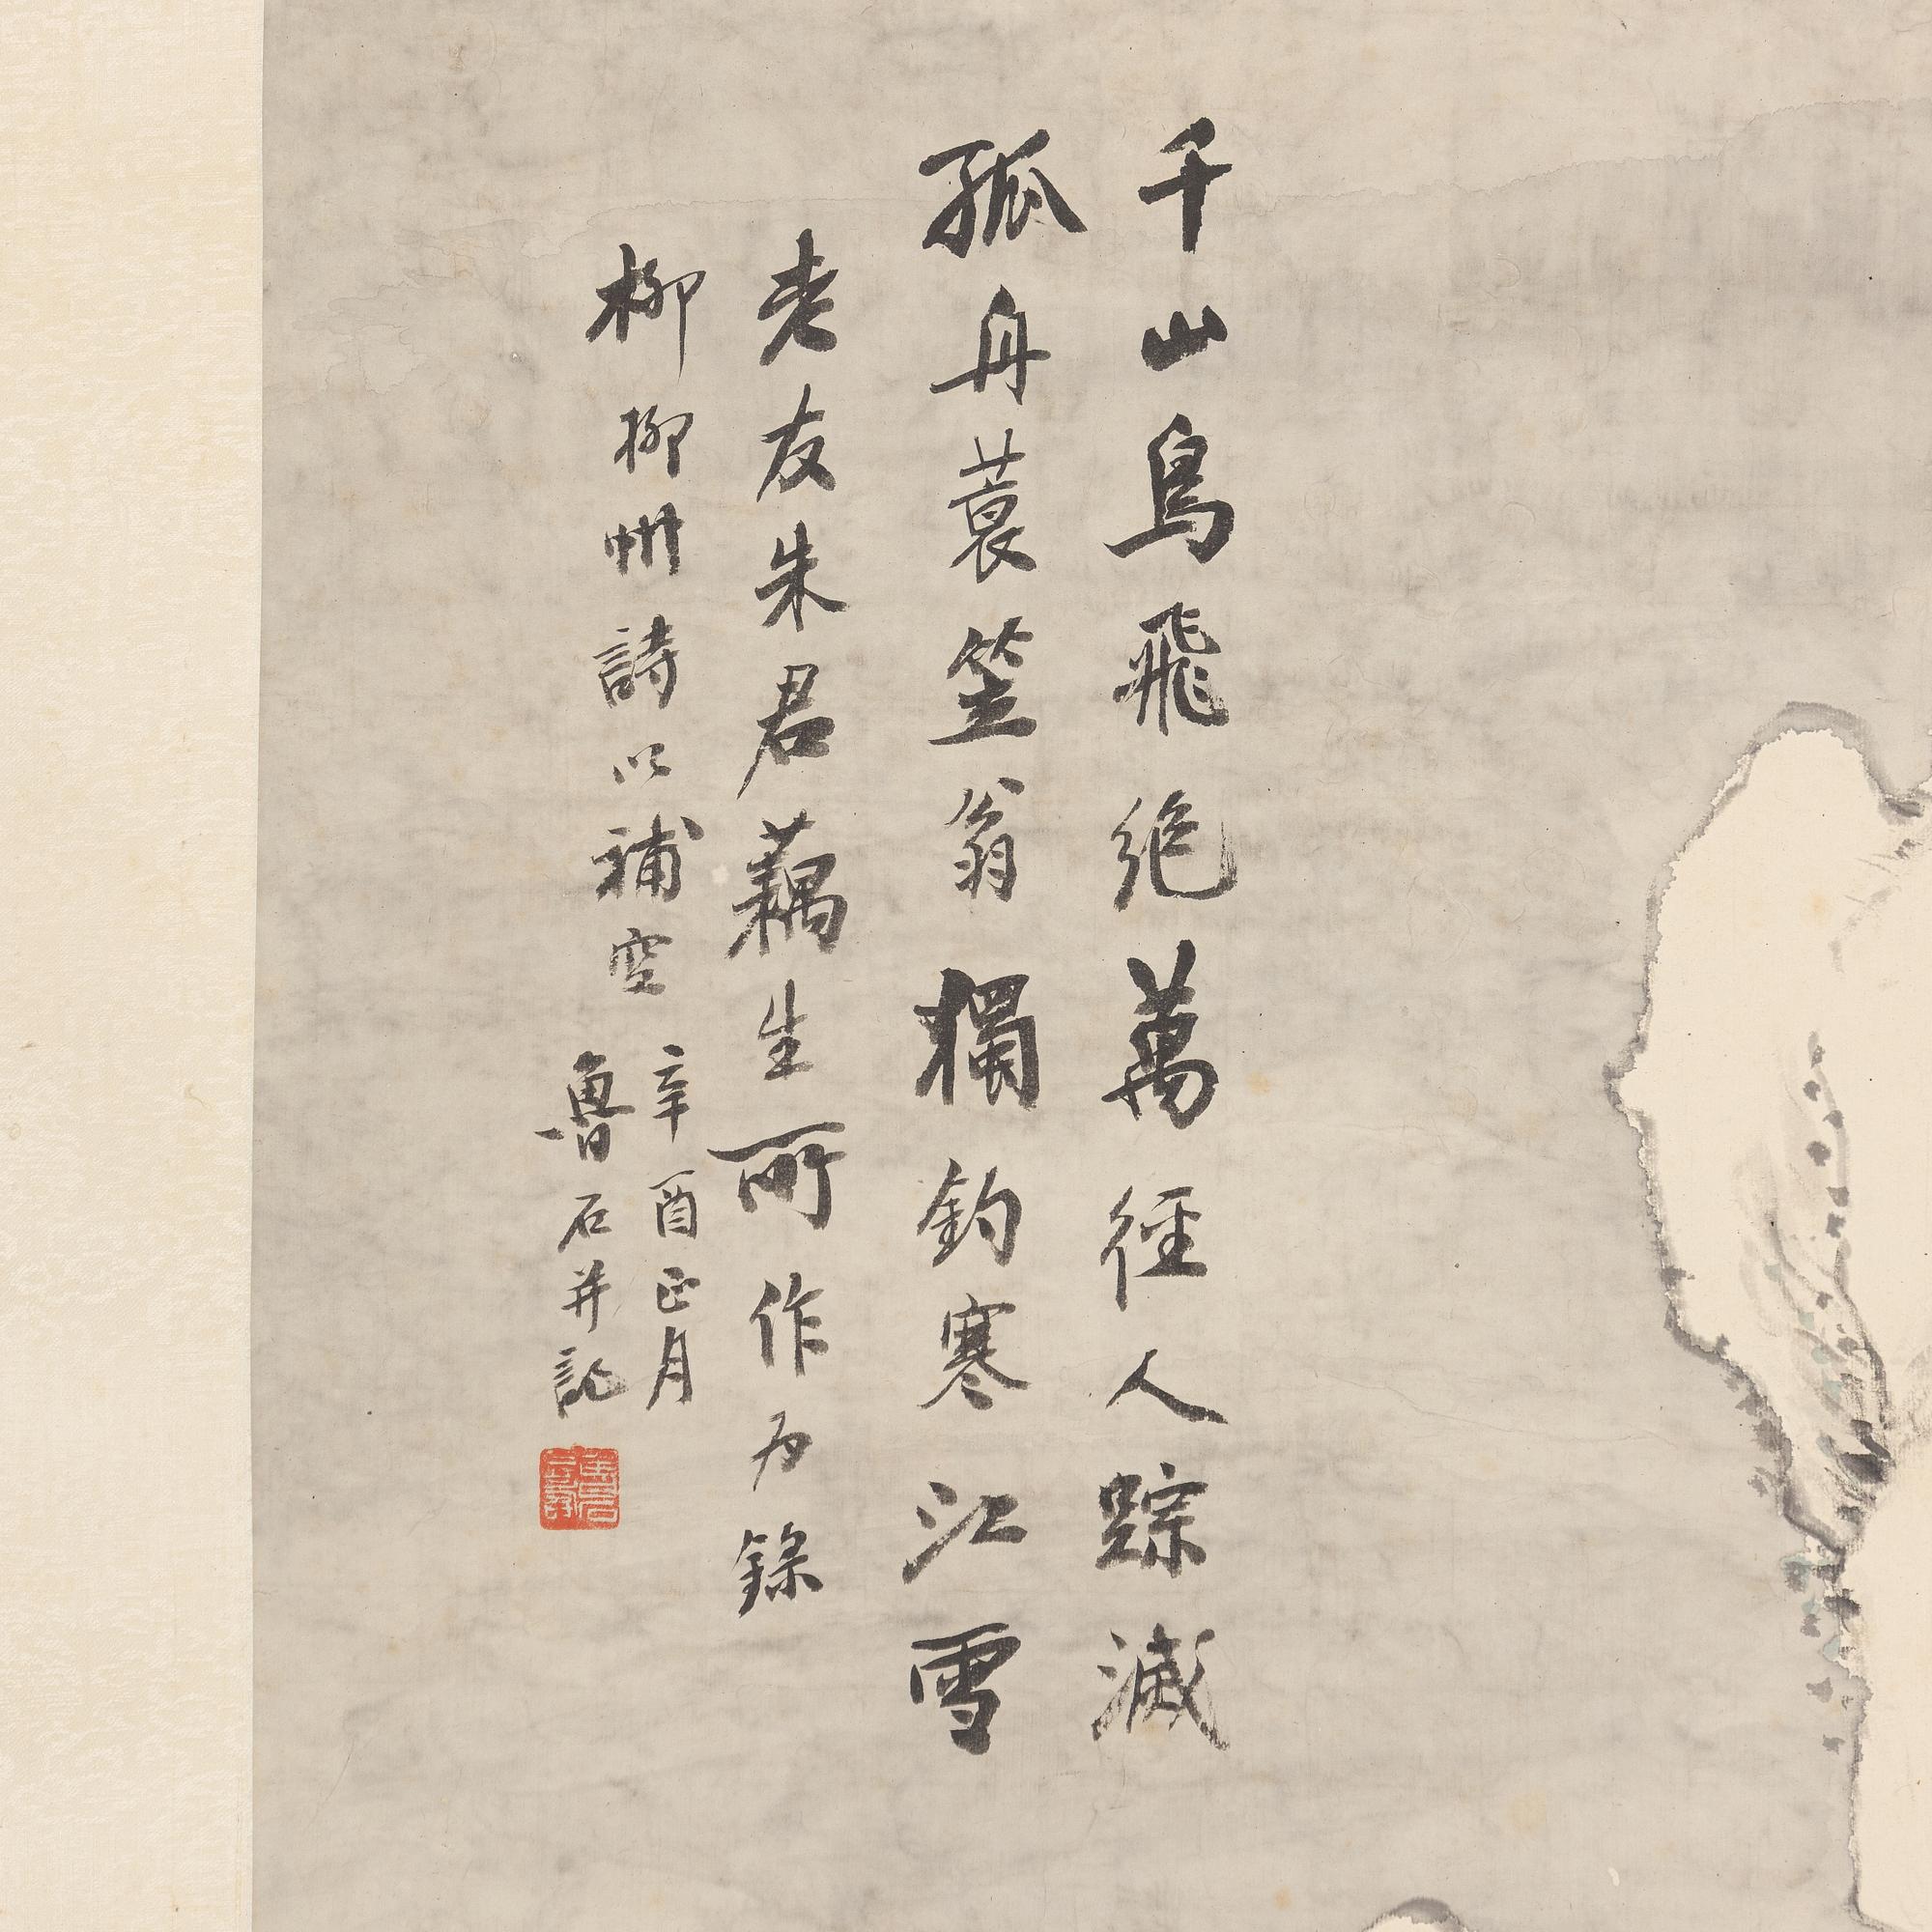 千山鳥飛絶萬徑人踪滅
孤舟蓑笠翁獨釣寒江雪
老友朱君藕生所作為錄
柳柳州詩以補空
辛酉正月
魯石并記